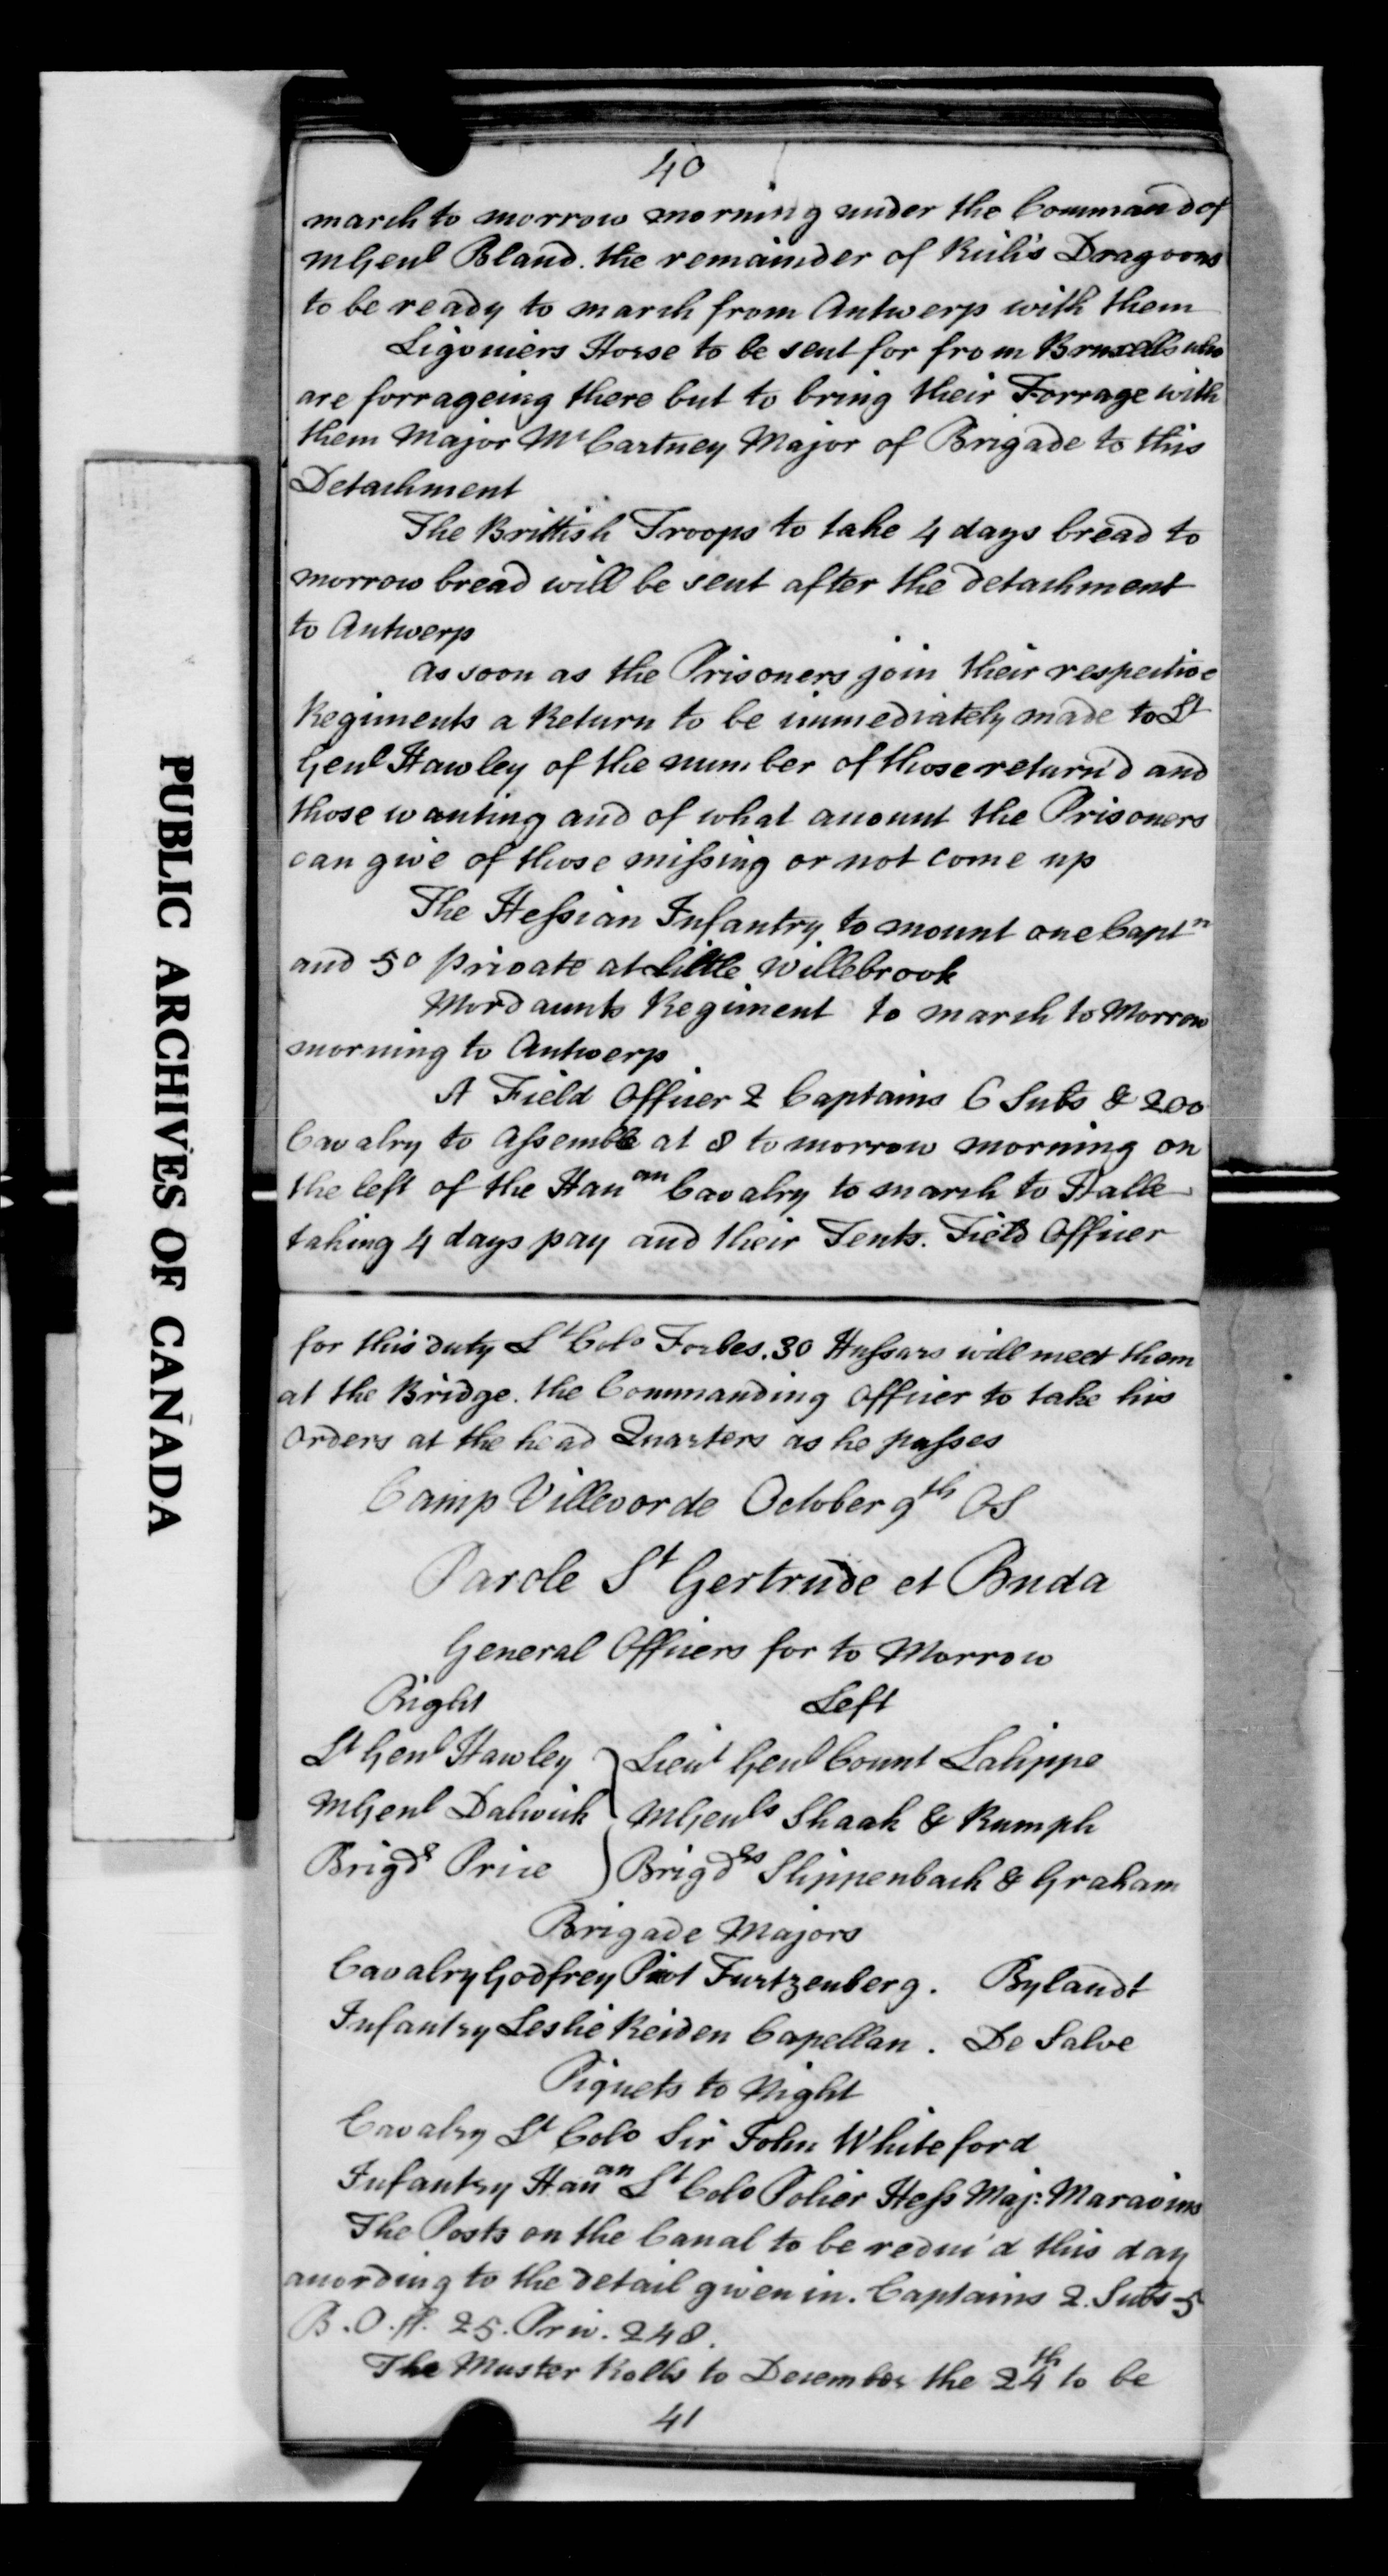 40
march to morrow morning under the Command of
MGenl Bland. the remainder of Rich's Dragoons
to be ready to march from Antwerp with them
Ligoniers Horse to be sent for from Bruxells who
are forrageing there but to bring their Forrage with
them Major McCartney Major of Brigade to this
Detachment
The Brittish Troops to take 4 days bread to
morrow bread will be sent after the detachment
to Antwerp
As soon as the Prisoners join their respective
Regiments a Return to be immediately made to Lt
Genl Hawley of the number of those return'd and
those wanting and of what account the Prisoners
can give of those missing or not come up
The Hessian Infantry to mount one Captn
and 50 private at Little Willebrook
Mordaunts Regiment to march to Morrow
morning to Antwerp
A Field Officer 2 Captains 6 Subs & 200
Cavalry to Assemble at 8 to morrow morning on
the left of the Hanan Cavalry to march to Halle
taking 4 days pay and their Tents. Field Officer
for this duty Lt Colo Forbes. 30 Hussars will meet them
at the Bridge. the Commanding Officer to take his
Orders at the head Quarters as he passes
Camp Villevorde October 9th OS
Parole St Gertrude et Buda
General Officers for to Morrow
Right Left
Lt Genl Hawley Lieut Genl Count Lalippe
MGenl Dalwick MGenls Shaak & Rumph
Brigdr Price Brigdrs Slippenbach & Graham
Brigade Majors
Cavalry Godfrey Piot Furtzenberg. Bylandt
Infantry Leslie Reiden Capellan. De Salve
Piquets to Night
Cavalry Lt Colo Sir John Whiteford
Infantry Hanan Lt Colo Polier Hess Maj: Maravins
The Posts on the Canal to be reduc'd this day
according to the detail given in. Captains 2. Subs 5
B.O.ff. 25. Priv. 248.
The Muster Rolls to December the 24th to be
41
PUBLIC ARCHIVES OF CANADA